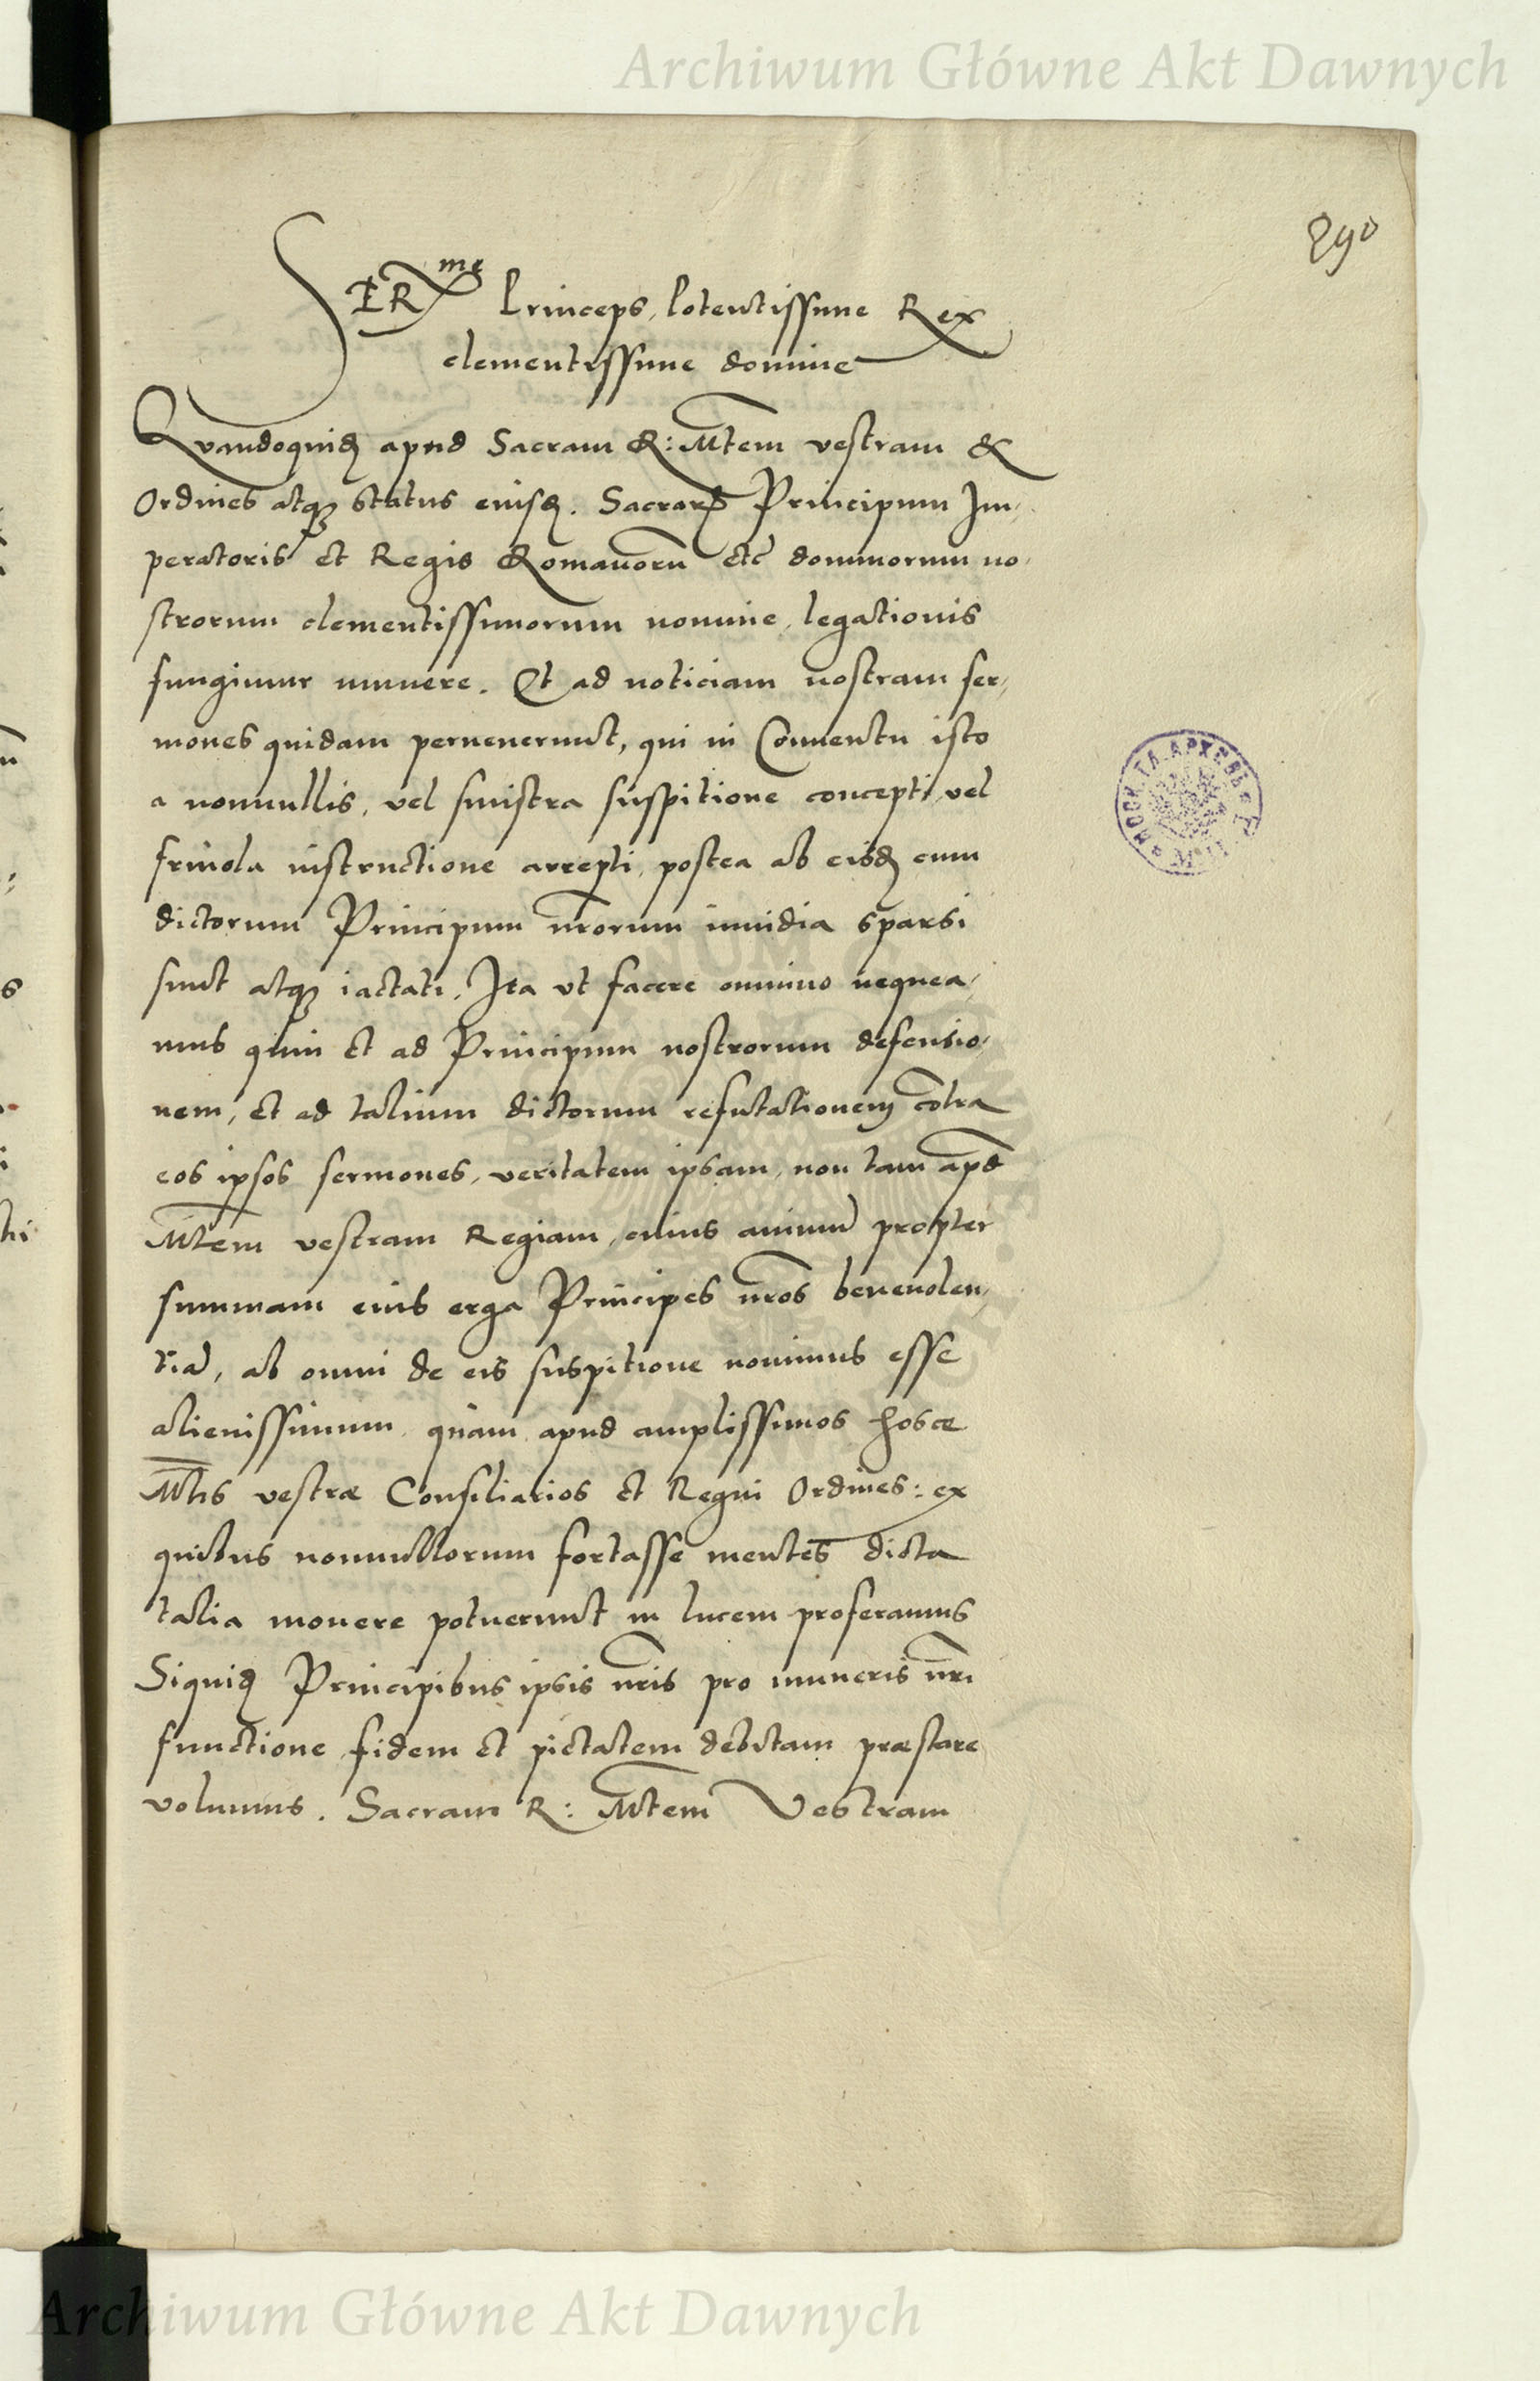 Archiwum Główne Akt Dawnych
290
SERme Princeps, Potentissime Rex
clementissime domine
Quandoquidẽ apud Sacram R: Mtem vestram &
Ordines atq₃ status eiusdẽ. Sacrarũ Principum Im,
peratoris et Regis Romanorũ etc̃ dominorum no,
strorum clementissimorum nomine, legationis
fungimur munere. Et ad noticiam nostram ser,
mones quidam peruenerunt, qui in Conuentu isto
a nonnullis, vel sinistra suspitione concepti, vel
friuola instructione arrepti, postea ab eisdẽ cum
dictorum Principum nr̃orum inuidia sparsi
sunt atq₃ iactati, Ita vt facere omnino nequea,
mus quin et ad Principum nostrorum defensio,
nem, et ad talium dictorum refutationem cõtra
eos ipsos sermones, veritatem ipsam, non tam apd̃
Mtem vestram Regiam, cuius animũ propter
summam eius erga Principes nr̃os beneuolen,
tiã, ab omni de eis suspitione nouimus esse
alienissimum, quàm apud amplissimos hosce
Mtis vestræ Consiliarios et Regni Ordines: ex
quibus nonnullorum fortasse mentes dicta
talia mouere potuerunt in lucem proferamus
Siquidẽ Principibus ipsis nr̃is pro muneris nr̃i
functione fidem et pietatem debitam præstare
volumus. Sacram R: Mtem Vestram
Archiwum Główne Akt Dawnych